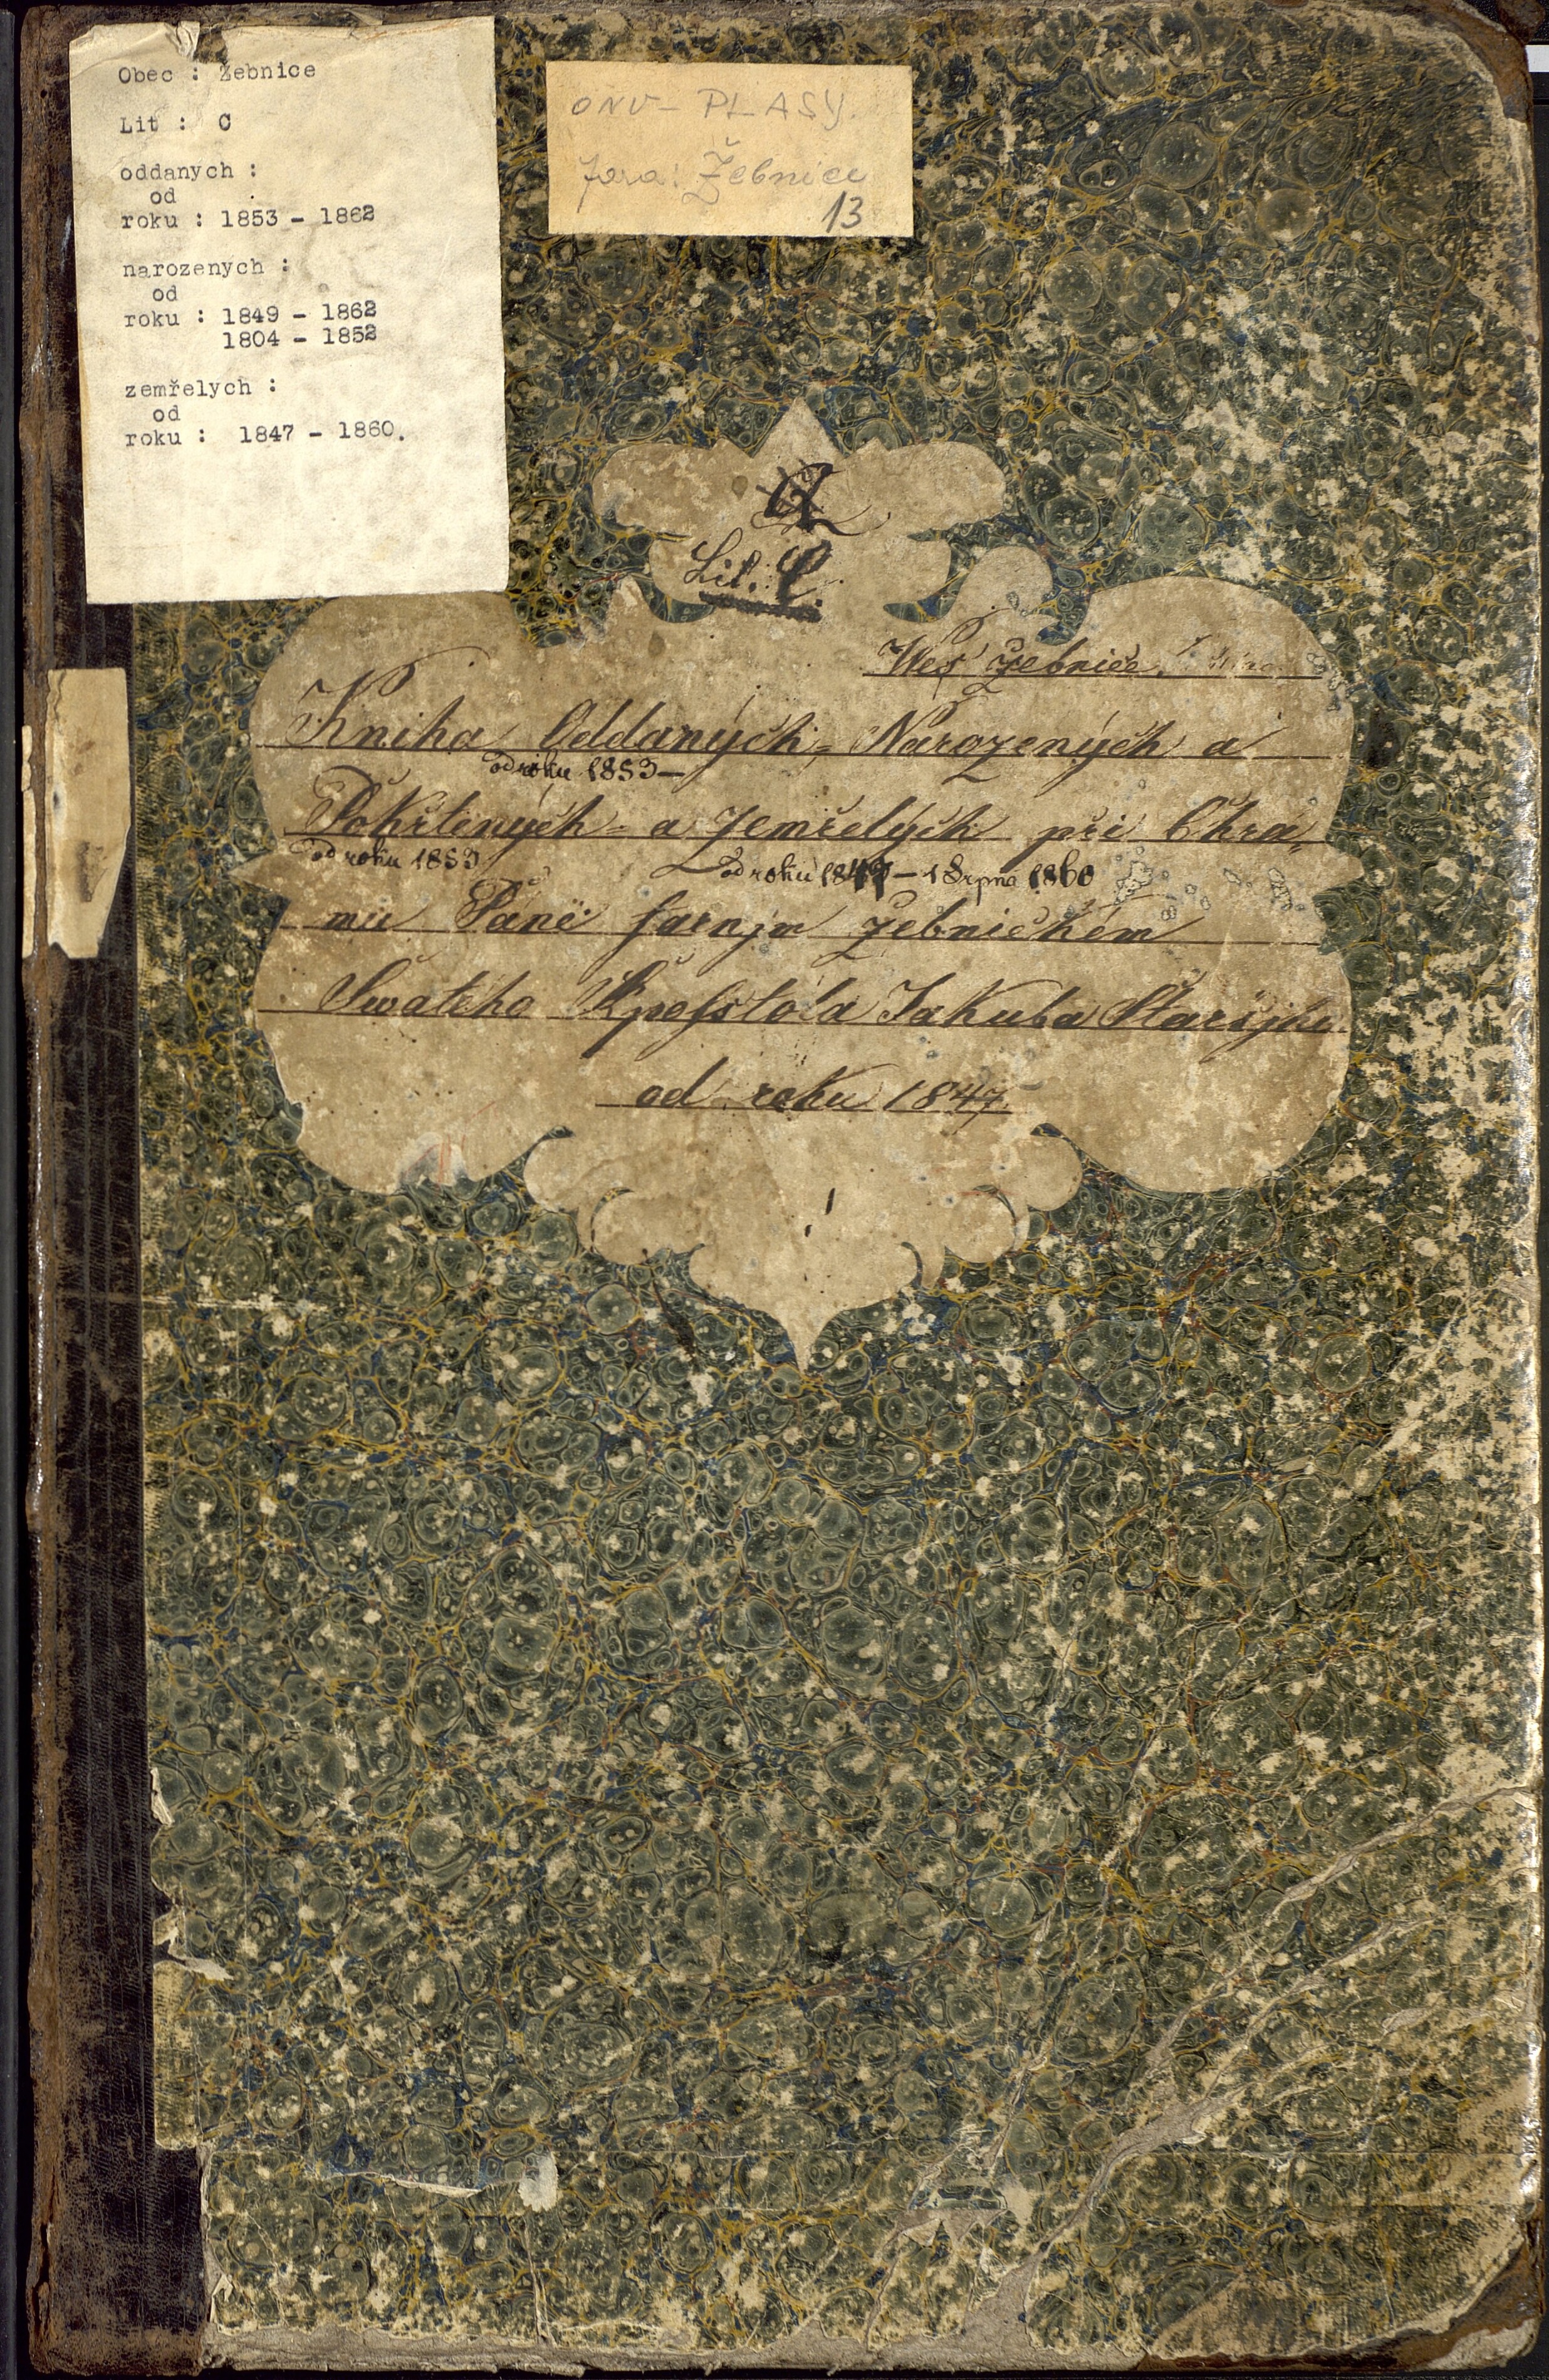 Obec : Žebnice
Lit : C
oddanych :
od
roku : 1853 - 1862
narozenych :
od
roku : 1849 - 1862
1804 - 1852
zemřelych :
od
roku : 1847 - 1860.
ONV - PLASY.
fara: Žebnice
13
Lit. C.
Wes Žebnice.
Kniha Oddaných, Narozených a
od roku 1853 -
Pokřtených a Zemřelých při Chrá-
od roku 1853
od roku 1847 - 1 Srpna 1860
mu Páně farnjm Žebnickém
Swatého Apoſstola Jakuba Staršjho
od roku 1847.